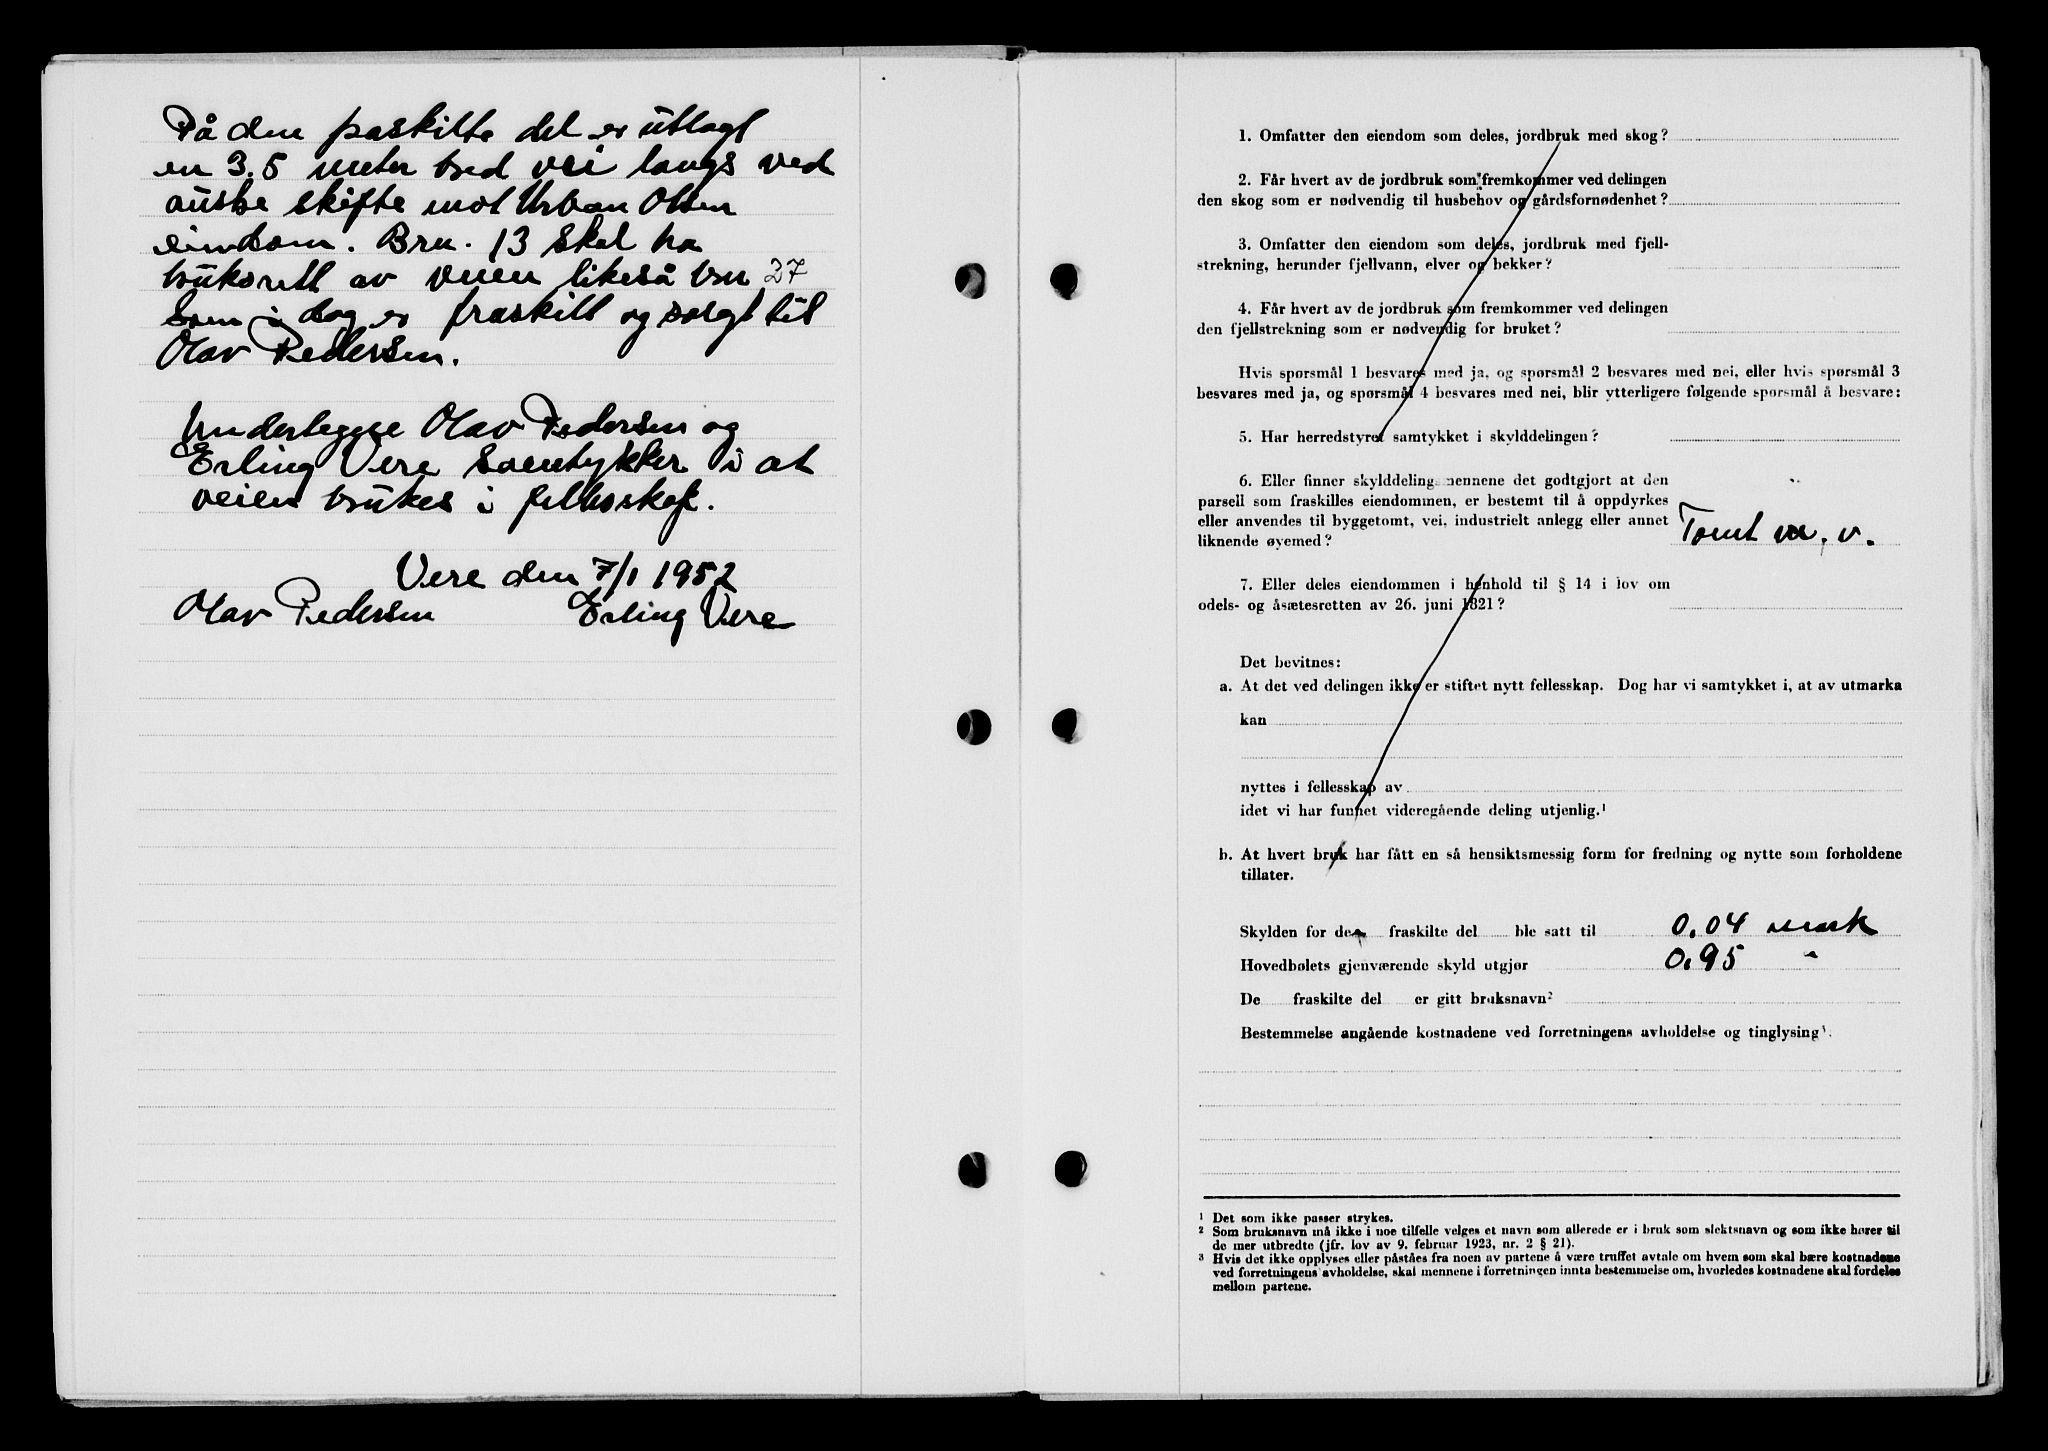 På den paskilte del er utlagt
en 3.5 meter bred vei langs ved
austre skifte mot Urban Olsen
eiendom. Bru. 13 skal ha
bruksrett av veien likeså bru 27
som i dag er fraskilt og solgt til
Olav Pedersen.
Undertegne Olav Pedersen og
Erling Vere samtykker i at
veien brukes i felleskap.
Vere den 7/1 1952
Olav Pedersen Erling Vere
1. Omfatter den eiendom som deles, jordbruk med skog?
2. Får hvert av de jordbruk som fremkommer ved delingen
den skog som er nødvendig til husbehov og gårdsfornødenhet?
3. Omfatter den eiendom som deles, jordbruk med fjell-
strekning, herunder fjellvann, elver og bekker?
4. Får hvert av de jordbruk som fremkommer ved delingen
den fjellstrekning som er nødvendig for bruket?
Hvis spørsmål 1 besvares med ja, og spørsmål 2 besvares med nei, eller hvis spørsmål 3
besvares med ja, og spørsmål 4 besvares med nei, blir ytterligere følgende spørsmål å besvare:
5. Har herredstyret samtykket i skylddelingen?
6. Eller finner skylddelingsmennene det godtgjort at den
parsell som fraskilles eiendommen, er bestemt til å oppdyrkes
eller anvendes til byggetomt, vei, industrielt anlegg eller annet
liknende øyemed? Tomt m. v.
7. Eller deles eiendommen i henhold til § 14 i lov om
odels- og åsætesretten av 26. juni 1821?
Det bevitnes:
a. At det ved delingen ikke er stiftet nytt fellesskap. Dog har vi samtykket i, at av utmarka
kan
nyttes i fellesskap av
idet vi har funnet videregående deling utjenlig.¹
b. At hvert bruk har fått en så hensiktsmessig form for fredning og nytte som forholdene
tillater.
Skylden for den fraskilte del ble satt til 0.04 mark
Hovedbølets gjenværende skyld utgjør 0.95 "
De fraskilte del er gitt bruksnavn²
Bestemmelse angående kostnadene ved forretningens avholdelse og tinglysing³.
¹ Det som ikke passer strykes.
² Som bruksnavn må ikke i noe tilfelle velges et navn som allerede er i bruk som slektsnavn og som ikke hører til
de mer utbredte (jfr. lov av 9. februar 1923, nr. 2 § 21).
³ Hvis det ikke opplyses eller påståes fra noen av partene å være truffet avtale om hvem som skal bære kostnadene
ved forretningens avholdelse, skal mennene i forretningen innta bestemmelse om, hvorledes kostnadene skal fordeles
mellom partene.